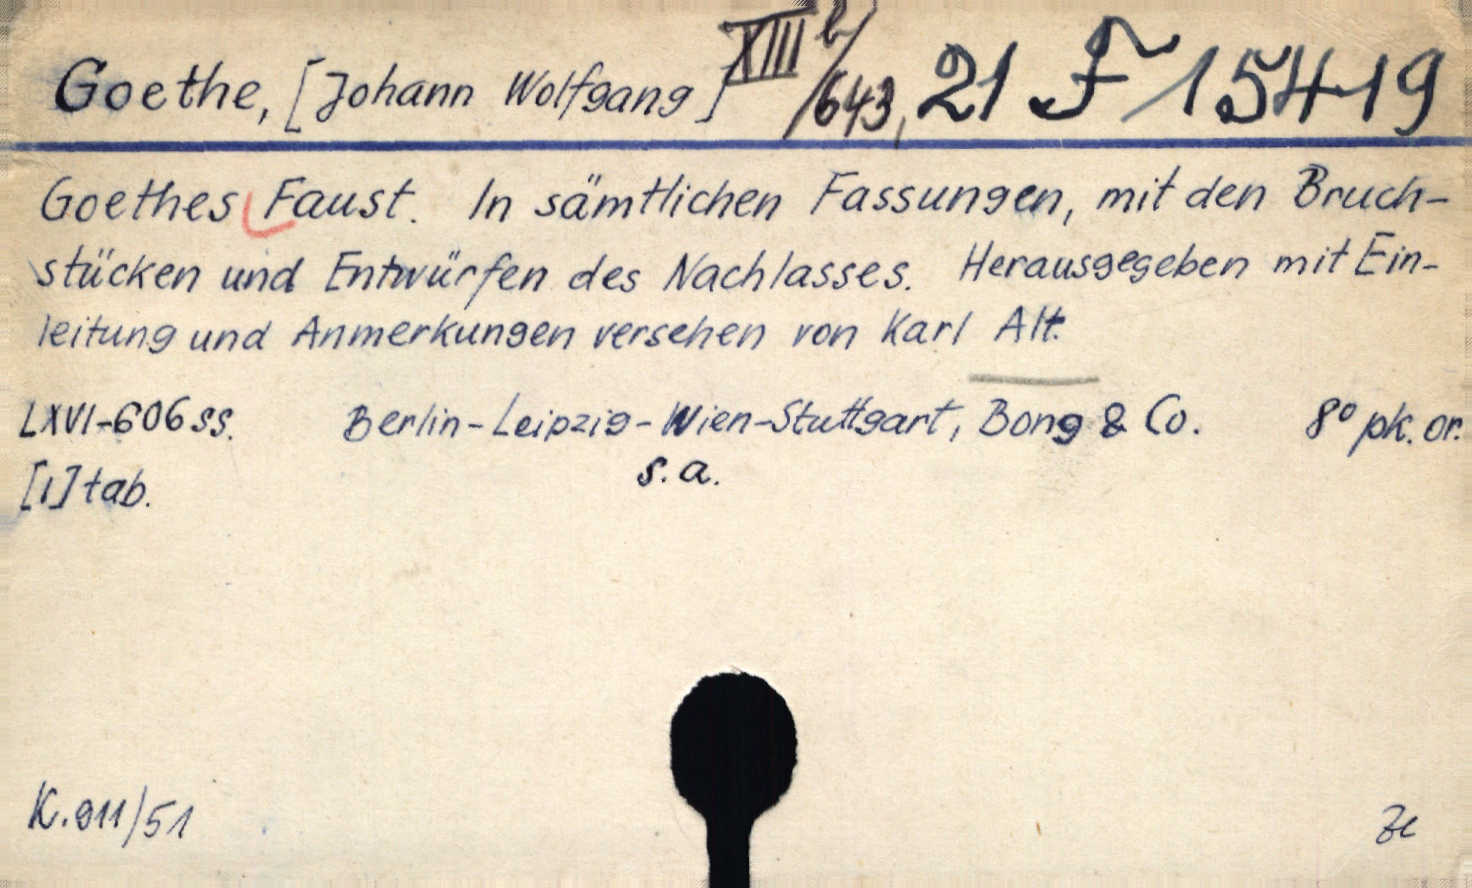 Goethe, [Johann Wolfgang] XIII b/643, 21 F 15419
Goethes Faust. In sämtlichen Fassungen, mit den Bruch-
stücken und Entwürfen des Nachlasses. Herausgegeben mit Ein-
leitung und Anmerkungen versehen von Karl Alt.
LXVI-606 ss. Berlin-Leipzig-Wien-Stuttgart, Bong & Co. 8° pk. or.
[1] tab. s. a.
K. 911/51